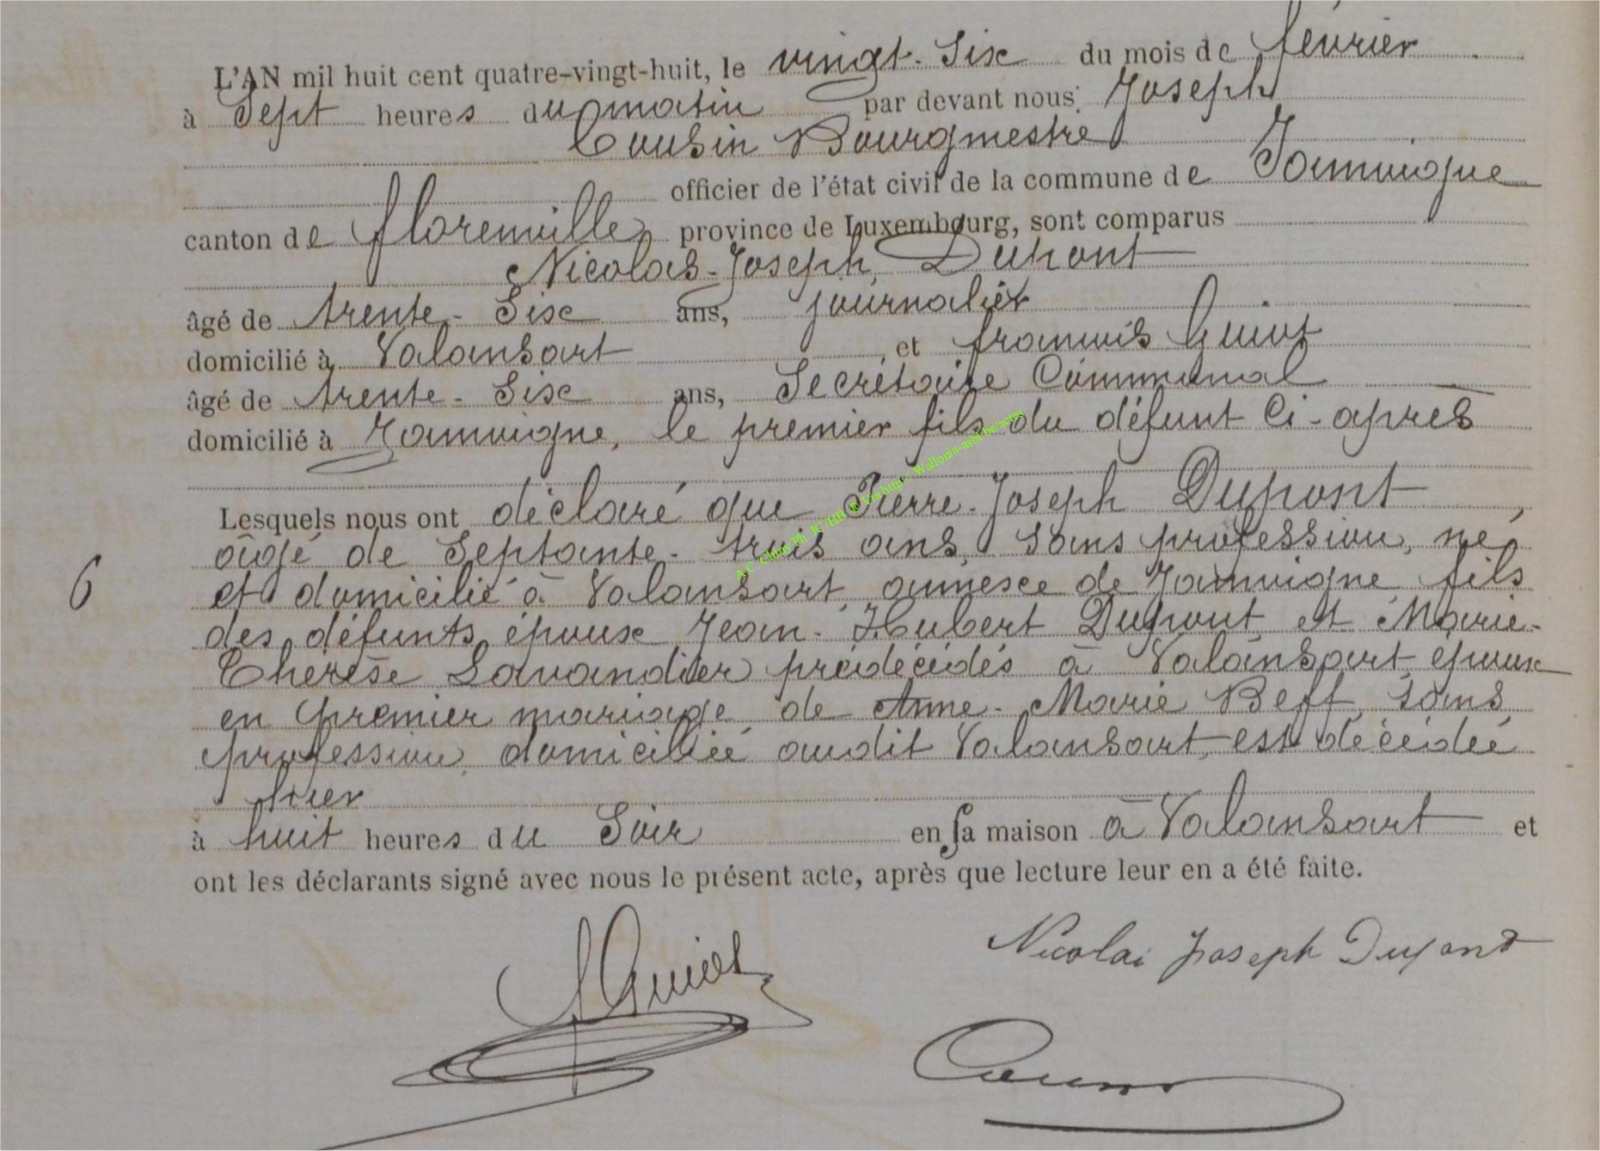 L'AN mil huit cent quatre-vingt-huit, le vingt-six du mois de février
à Sept heures du matin par devant nous Joseph
Cousin Bourgmestre
officier de l'état civil de la commune de Jamoigne
canton de florenville province de Luxembourg, sont comparus
Nicolas-Joseph Dupont
âgé de trente-six ans, journalier
domicilié à Valansart et francois Guiot
âgé de trente-six ans, Secrétaire Communal
domicilié à Jamoigne, le premier fils du défunt Ci-après
Lesquels nous ont déclaré que Pierre-Joseph Dupont,
âgé de Septante-trois ans, sans profession, né
et domicilié à Valansart, annexe de Jamoigne fils
des défunts époux Jean-Hubert Dupont et Marie-
Thérèse Lavandier prédécédés à Valansart, époux
en premier mariage de Anne-Marie Beff, sans
profession, domiciliée audit Valansart, est décédé
hier
à huit heures du Soir en sa maison à Valansart et
ont les déclarants signé avec nous le présent acte, après que lecture leur en a été faite.
6
Nicolas Joseph Dupont
f Guiot
Cousin